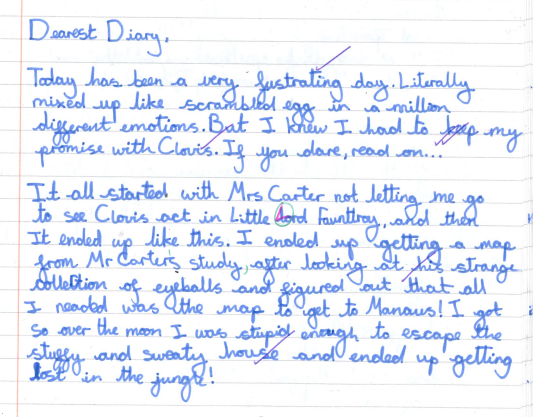 Dearest Diary,
Today has been a very fustrating day. Literally
mixed up like scrambled egg in a million
different emotions. But I knew I had to keep my
promise with Clovis. If you dare, read on...
It all started with Mrs Carter not letting me go
to see Clovis act in Little Lord Fauntlroy, and then
It ended up like this. I ended up getting a map
from Mr Carter's study, after looking at his strange
collection of eyeballs and figured out that all
I neaded was the map to get to Manaus! I got
so over the moon I was stupid enough to escape the
stuffy and sweaty house and ended up getting
lost in the jungle!